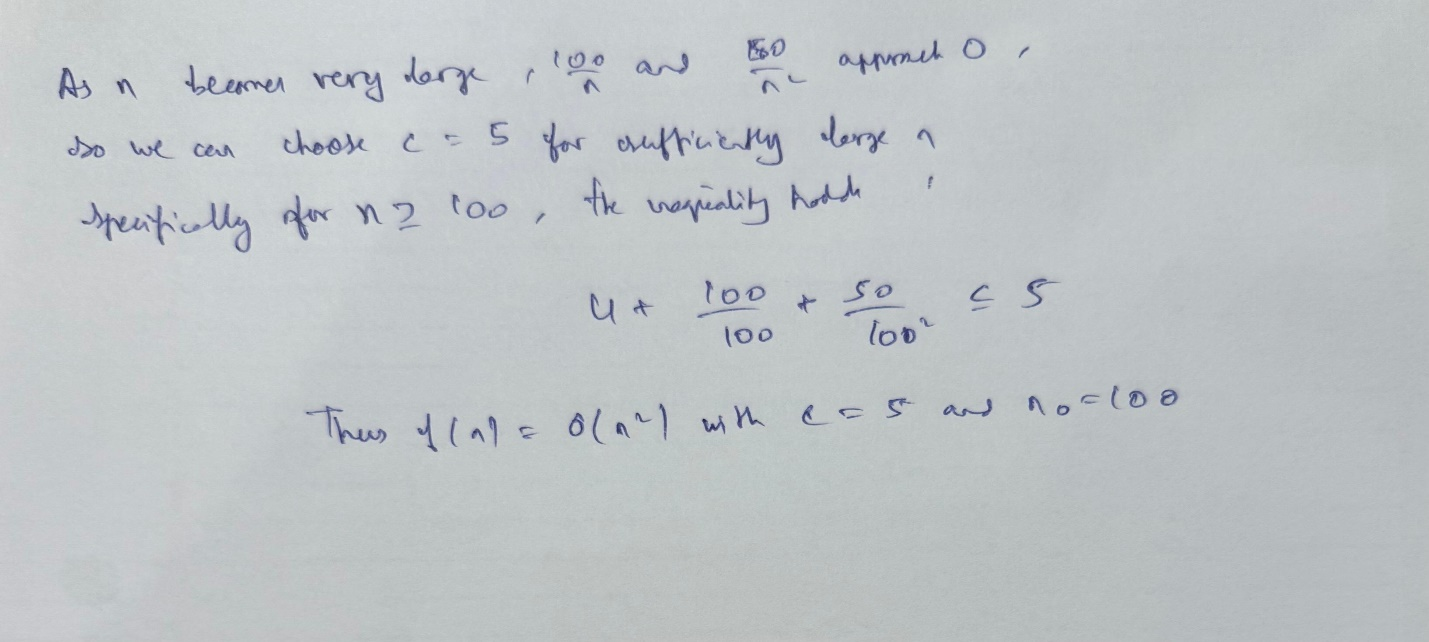 As n becomes very large, 100/n and 50/n² approach 0,
so we can choose c = 5 for sufficiently large n
specifically for n ≥ 100, the inequality holds:
4 + 100/100 + 50/100² ≤ 5
Thus f(n) = O(n²) with c = 5 and n₀ = 100